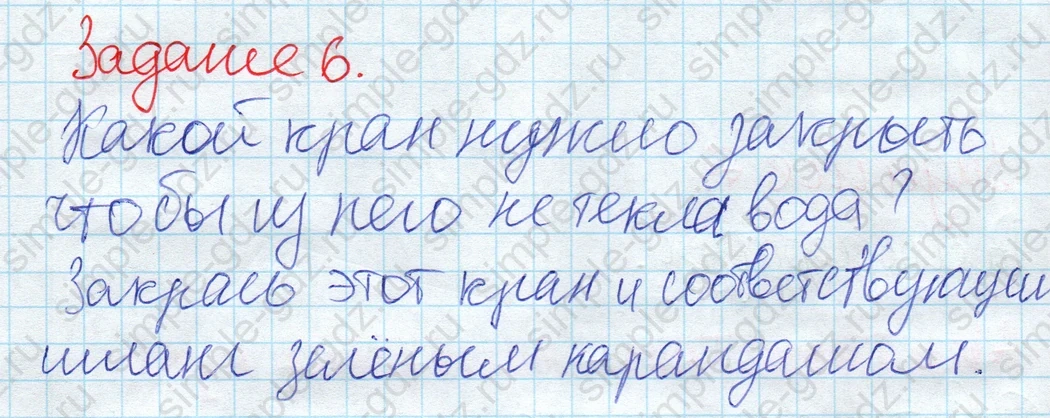 Задание 6.
Какой кран нужно закрыть
чтобы из него не текла вода?
Закрась этот кран и соответствующий
шланг зелёным карандашом.
simple-gdz.ru